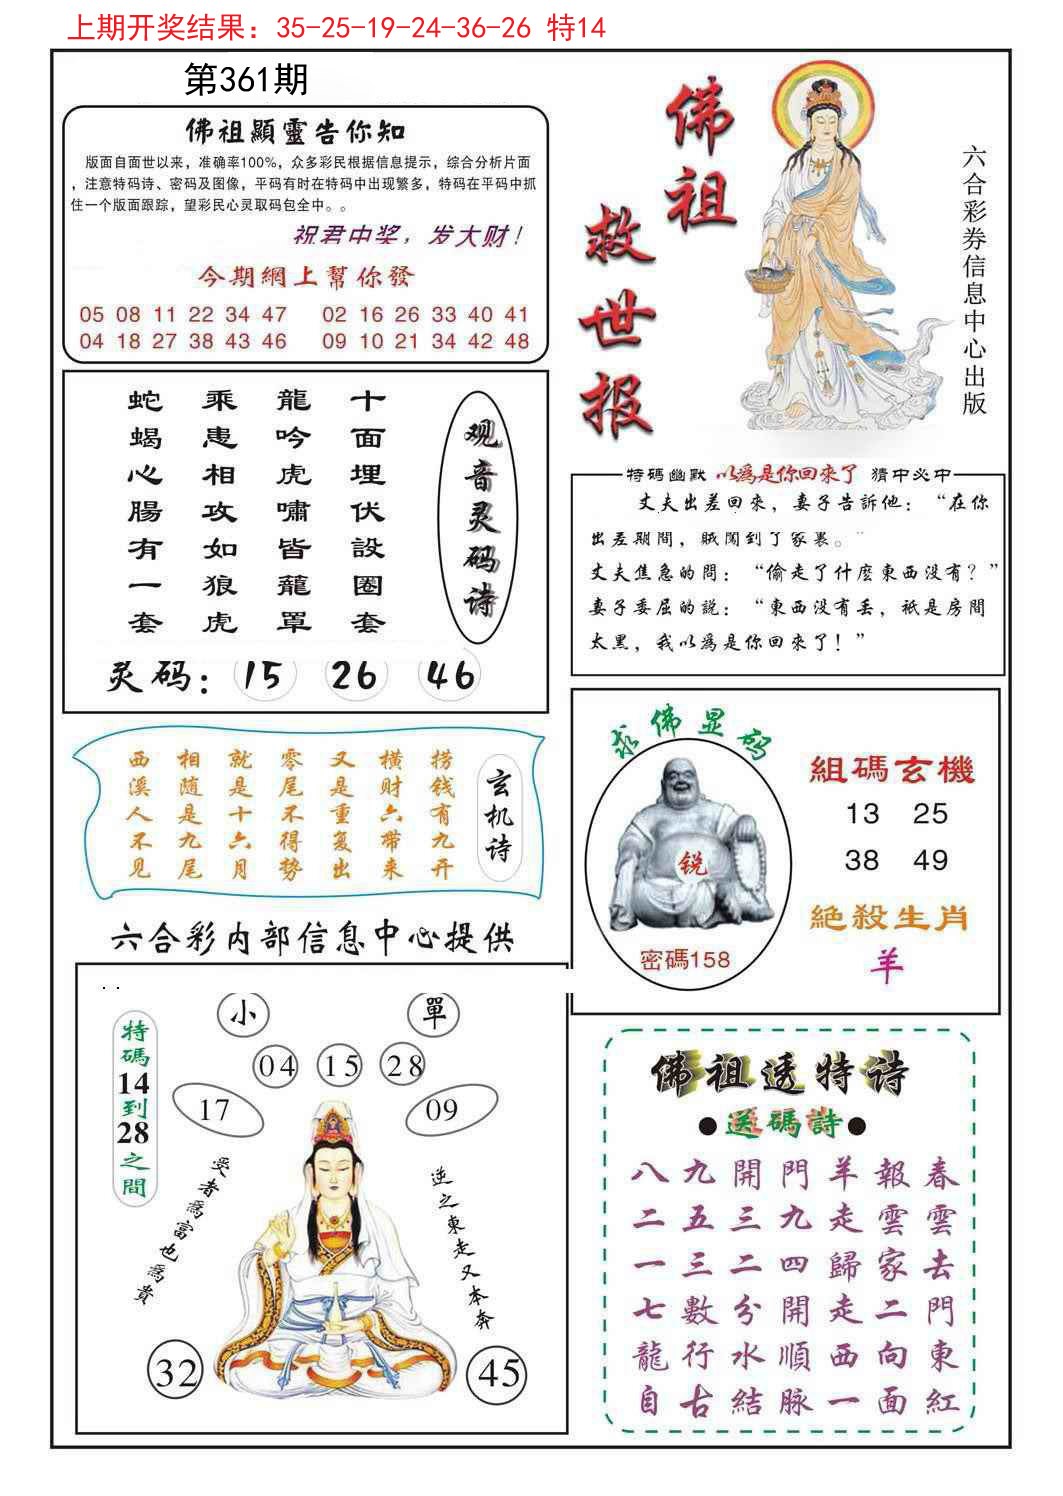 上期开奖结果：35-25-19-24-36-26 特14
第361期
佛祖顯靈告你知
版面自面世以来，准确率100%，众多彩民根据信息提示，综合分析片面
，注意特码诗、密码及图像，平码有时在特码中出现繁多，特码在平码中抓
住一个版面跟踪，望彩民心灵取码包全中。。
祝君中奖，发大财！
今期網上幫你發
05 08 11 22 34 47 02 16 26 33 40 41
04 18 27 38 43 46 09 10 21 34 42 48
佛祖
救世报
六合彩券信息中心出版
观音灵码诗
十面埋伏設圈套
龍吟虎嘯皆蘢罩
乘患相攻如狼虎
蛇蝎心腸有一套
灵码：15 26 46
特碼幽默 以為是你回來了 猜中必中
丈夫出差回來，妻子告訴他：“在你
出差期間，賊闖到了家裏。”
丈夫焦急的問：“偷走了什麽東西没有？”
妻子委屈的説：“東西没有丢，衹是房間
太黑，我以爲是你回來了！”
玄机诗
捞钱有九开
横财六带来
又是重复出
零尾不得势
就是十六月
相随是九尾
西溪人不见
求佛显码
锐
密碼158
組碼玄機
13 25
38 49
絕殺生肖
羊
六合彩内部信息中心提供
小 單
特碼14到28之間
04 15 28
17 09
受者爲富也爲貴
逆之東走又本奔
32 45
佛祖透特诗
●送碼詩●
八九開門羊報春
二五三九走雲雲
一三二四歸家去
七數分開走二門
龍行水順西向東
自古結脉一面紅